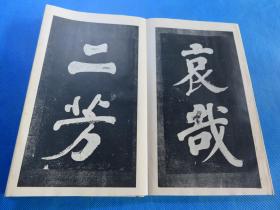 哀哉
二芳